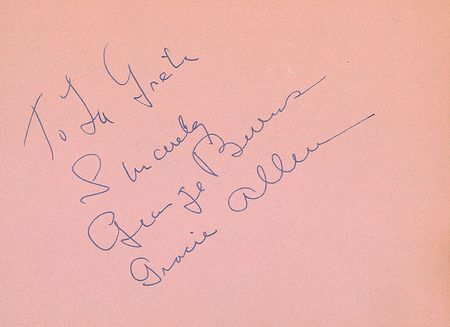 To La Grete
Sincerely
George Burns
Gracie Allen